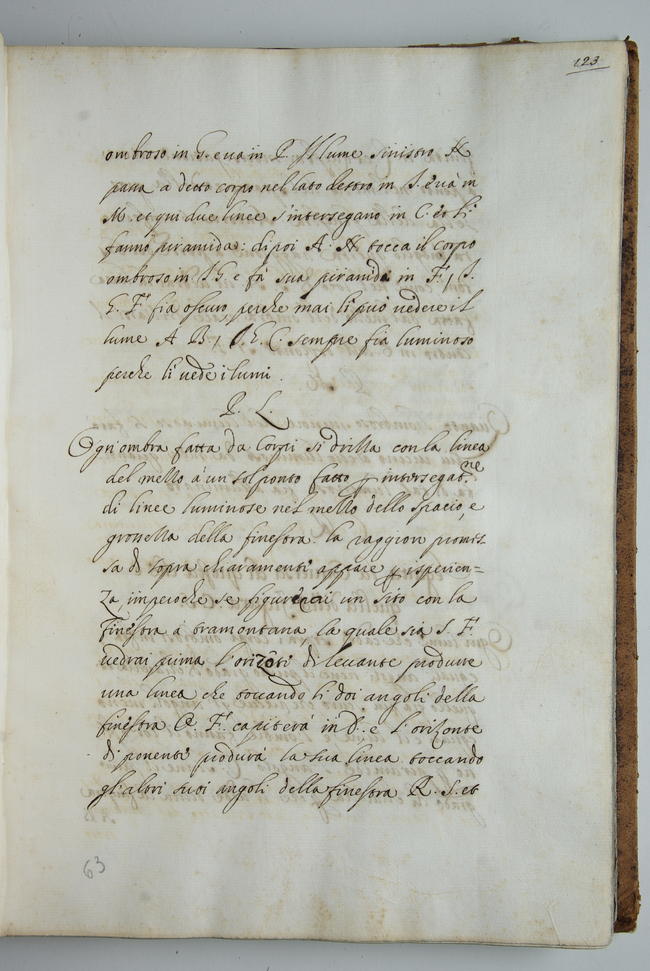 123
ombroso in G. e va in P. Il lume sinistro A
passa a detto corpo nel lato destro in S. e và in
M. et qui due linee s'intersegano in C. et li
fanno piramida: dipoi A. A. tocca il corpo
ombroso in G. e fà sua piramida in F.
F. fia oscuro, perche mai li può vedere il
lume A B, C. sempre fia luminoso
perche li vede i lumi.
P. L.
Ogni ombra fatta da Corpi si drilla con la linea
del mello à un sol ponto fatto p intersegat.ne
di linee luminose nel mello dello spacio, e
grossella della finestra la raggion promes-
sa di sopra chiaramente appare p isperien=
za, imperoche se figurerai un sito con la
finestra à tramontana, la quale sia S. F.
vedrai prima l'orizote di levante produrre
una linea, che toccando li doi angoli della
finestra F. capiterà in D. e l'orizonte
di ponente produrà la sua linea toccando
gl'altri suoi angoli della finestra R. S. et
63